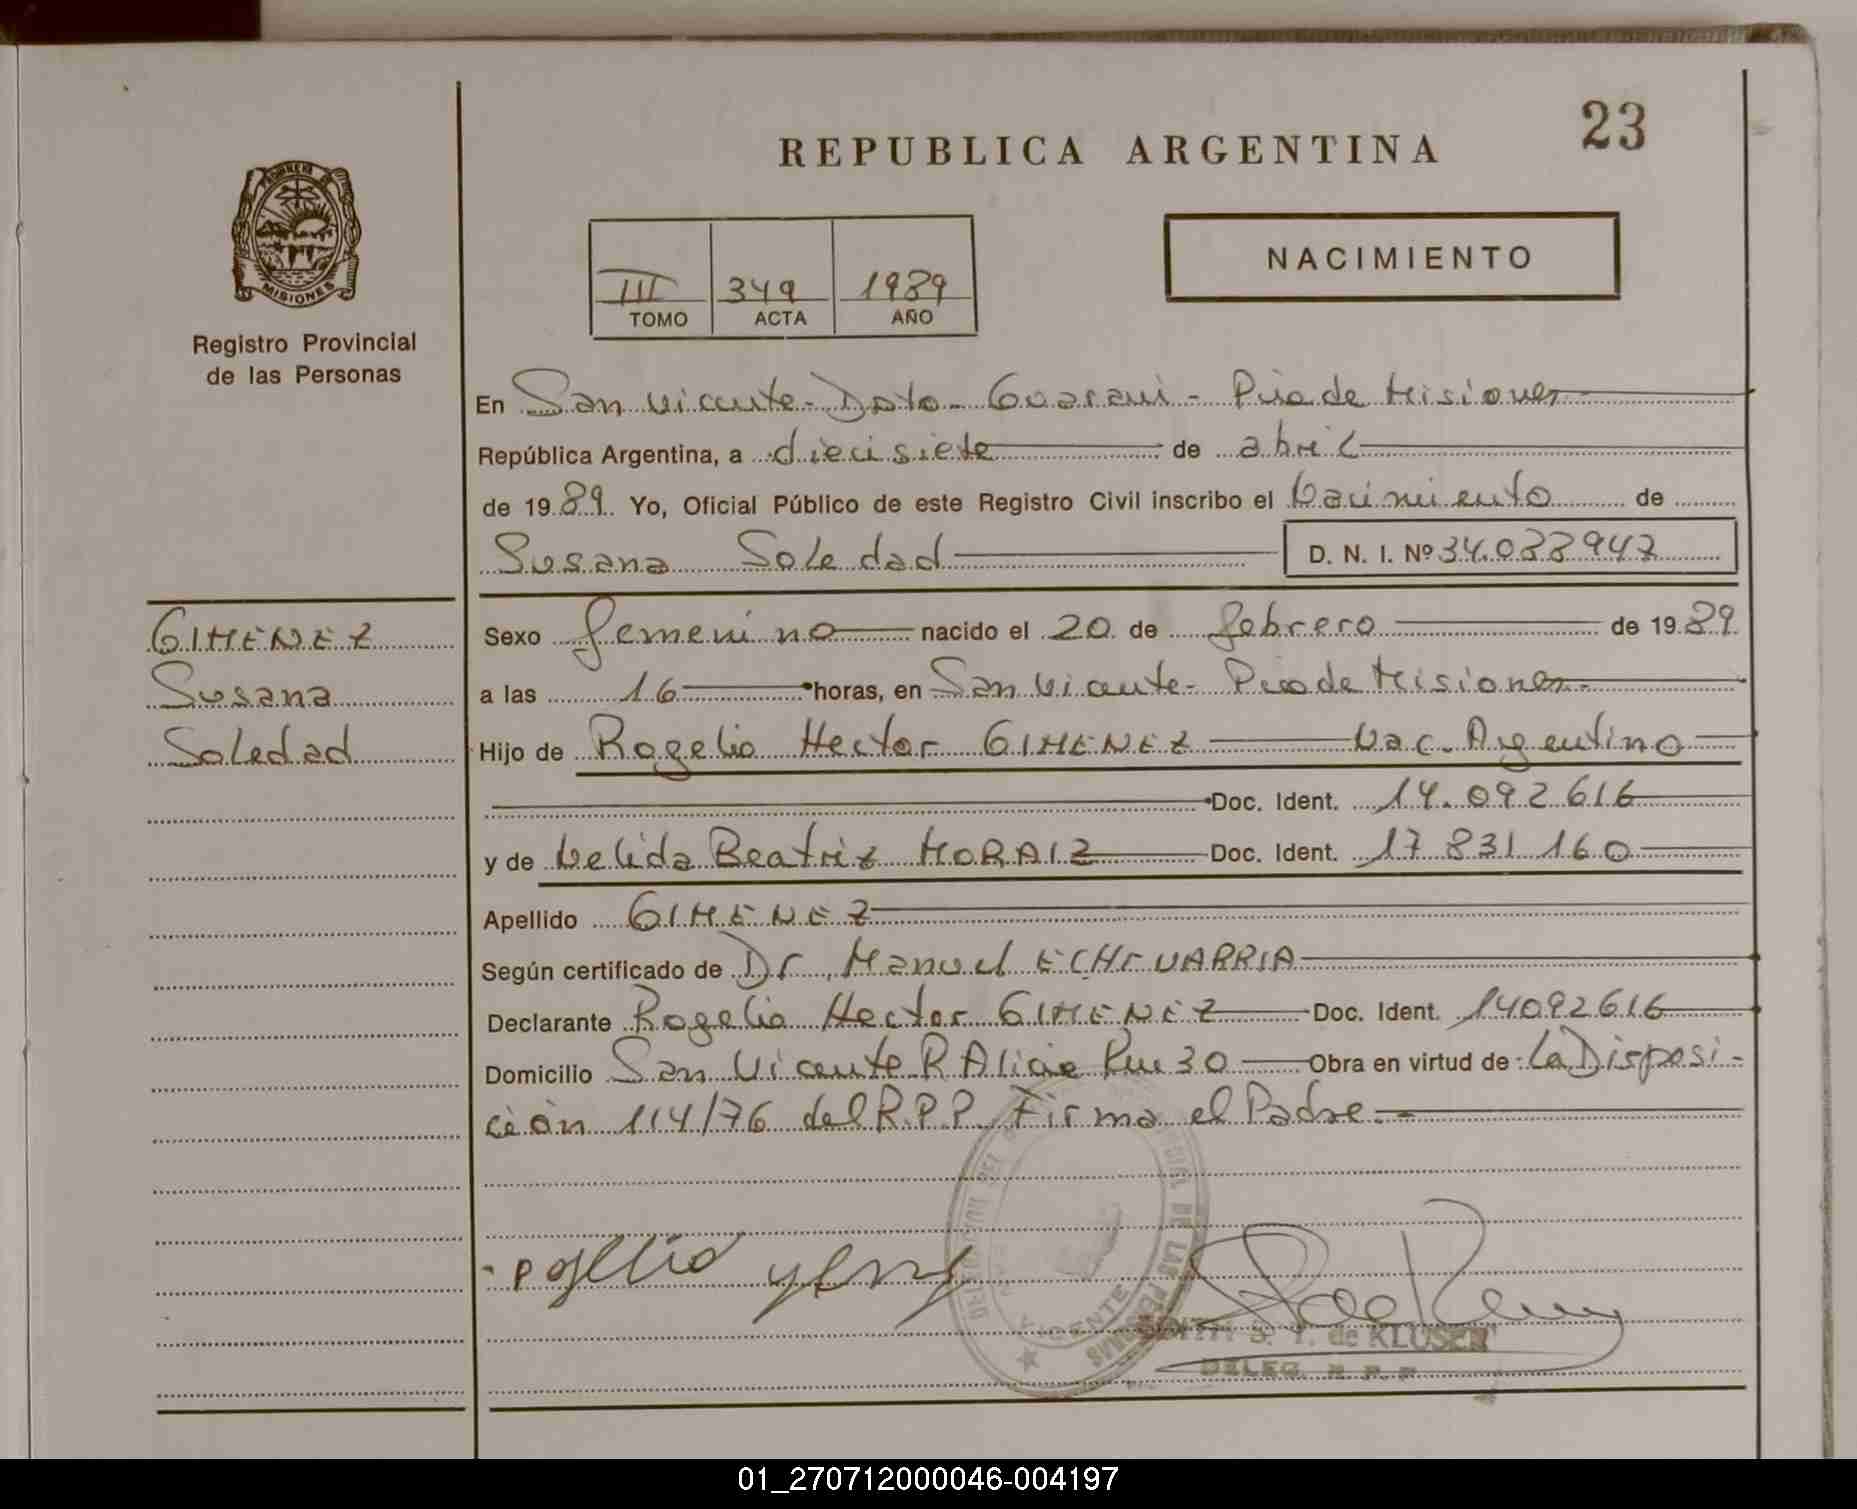 23
REPUBLICA ARGENTINA
NACIMIENTO
III 349 1989
TOMO ACTA AÑO
MISIONES
Registro Provincial
de las Personas
En San Vicente - Dpto - Guarani - Pcia de Misiones
República Argentina, a diecisiete de abril
de 1989 Yo, Oficial Público de este Registro Civil inscribo el Nacimiento de
Susana Soledad D. N. I. Nº 34.088947
GIMENEZ
Susana
Soledad
Sexo femenino nacido el 20 de febrero de 1989
a las 16 horas, en San Vicente - Pcia de Misiones
Hijo de Rogelio Hector GIMENEZ Nac. Argentino
Doc. Ident. 14.092616
y de Nelida Beatriz MORAIZ Doc. Ident. 17 831 160
Apellido GIMENEZ
Según certificado de Dr. Manuel ECHEVARRIA
Declarante Rogelio Hector GIMENEZ Doc. Ident. 14092616
Domicilio San Vicente R Alicia Km 30 Obra en virtud de: La Disposi-
ción 114/76 del R.P.P. Firma el Padre.-
VICENTE
S. T. de KLUSER
DELEG. R. P. P.
01_270712000046-004197